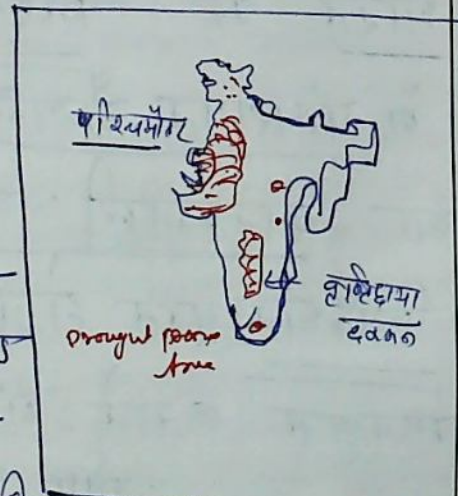 पश्चिमोत्तर
वृष्टिछाया
दक्कन
Drought prone
Area